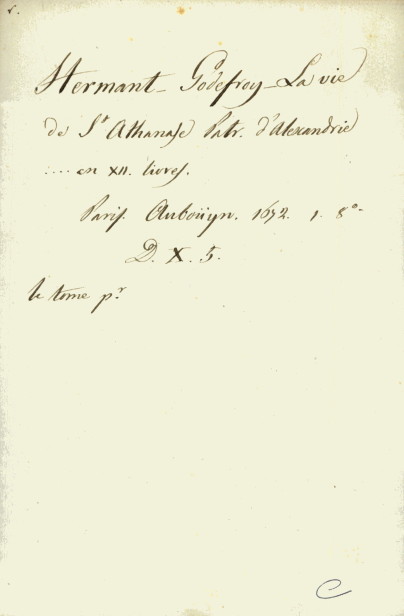 Hermant - Godefroy - La vie
de St Athanase Patr. d'Alexandrie
.... en XII. livres.
Paris. Auboüyn. 1672. 1. 8°.
D. X. 5.
le tome pr
C